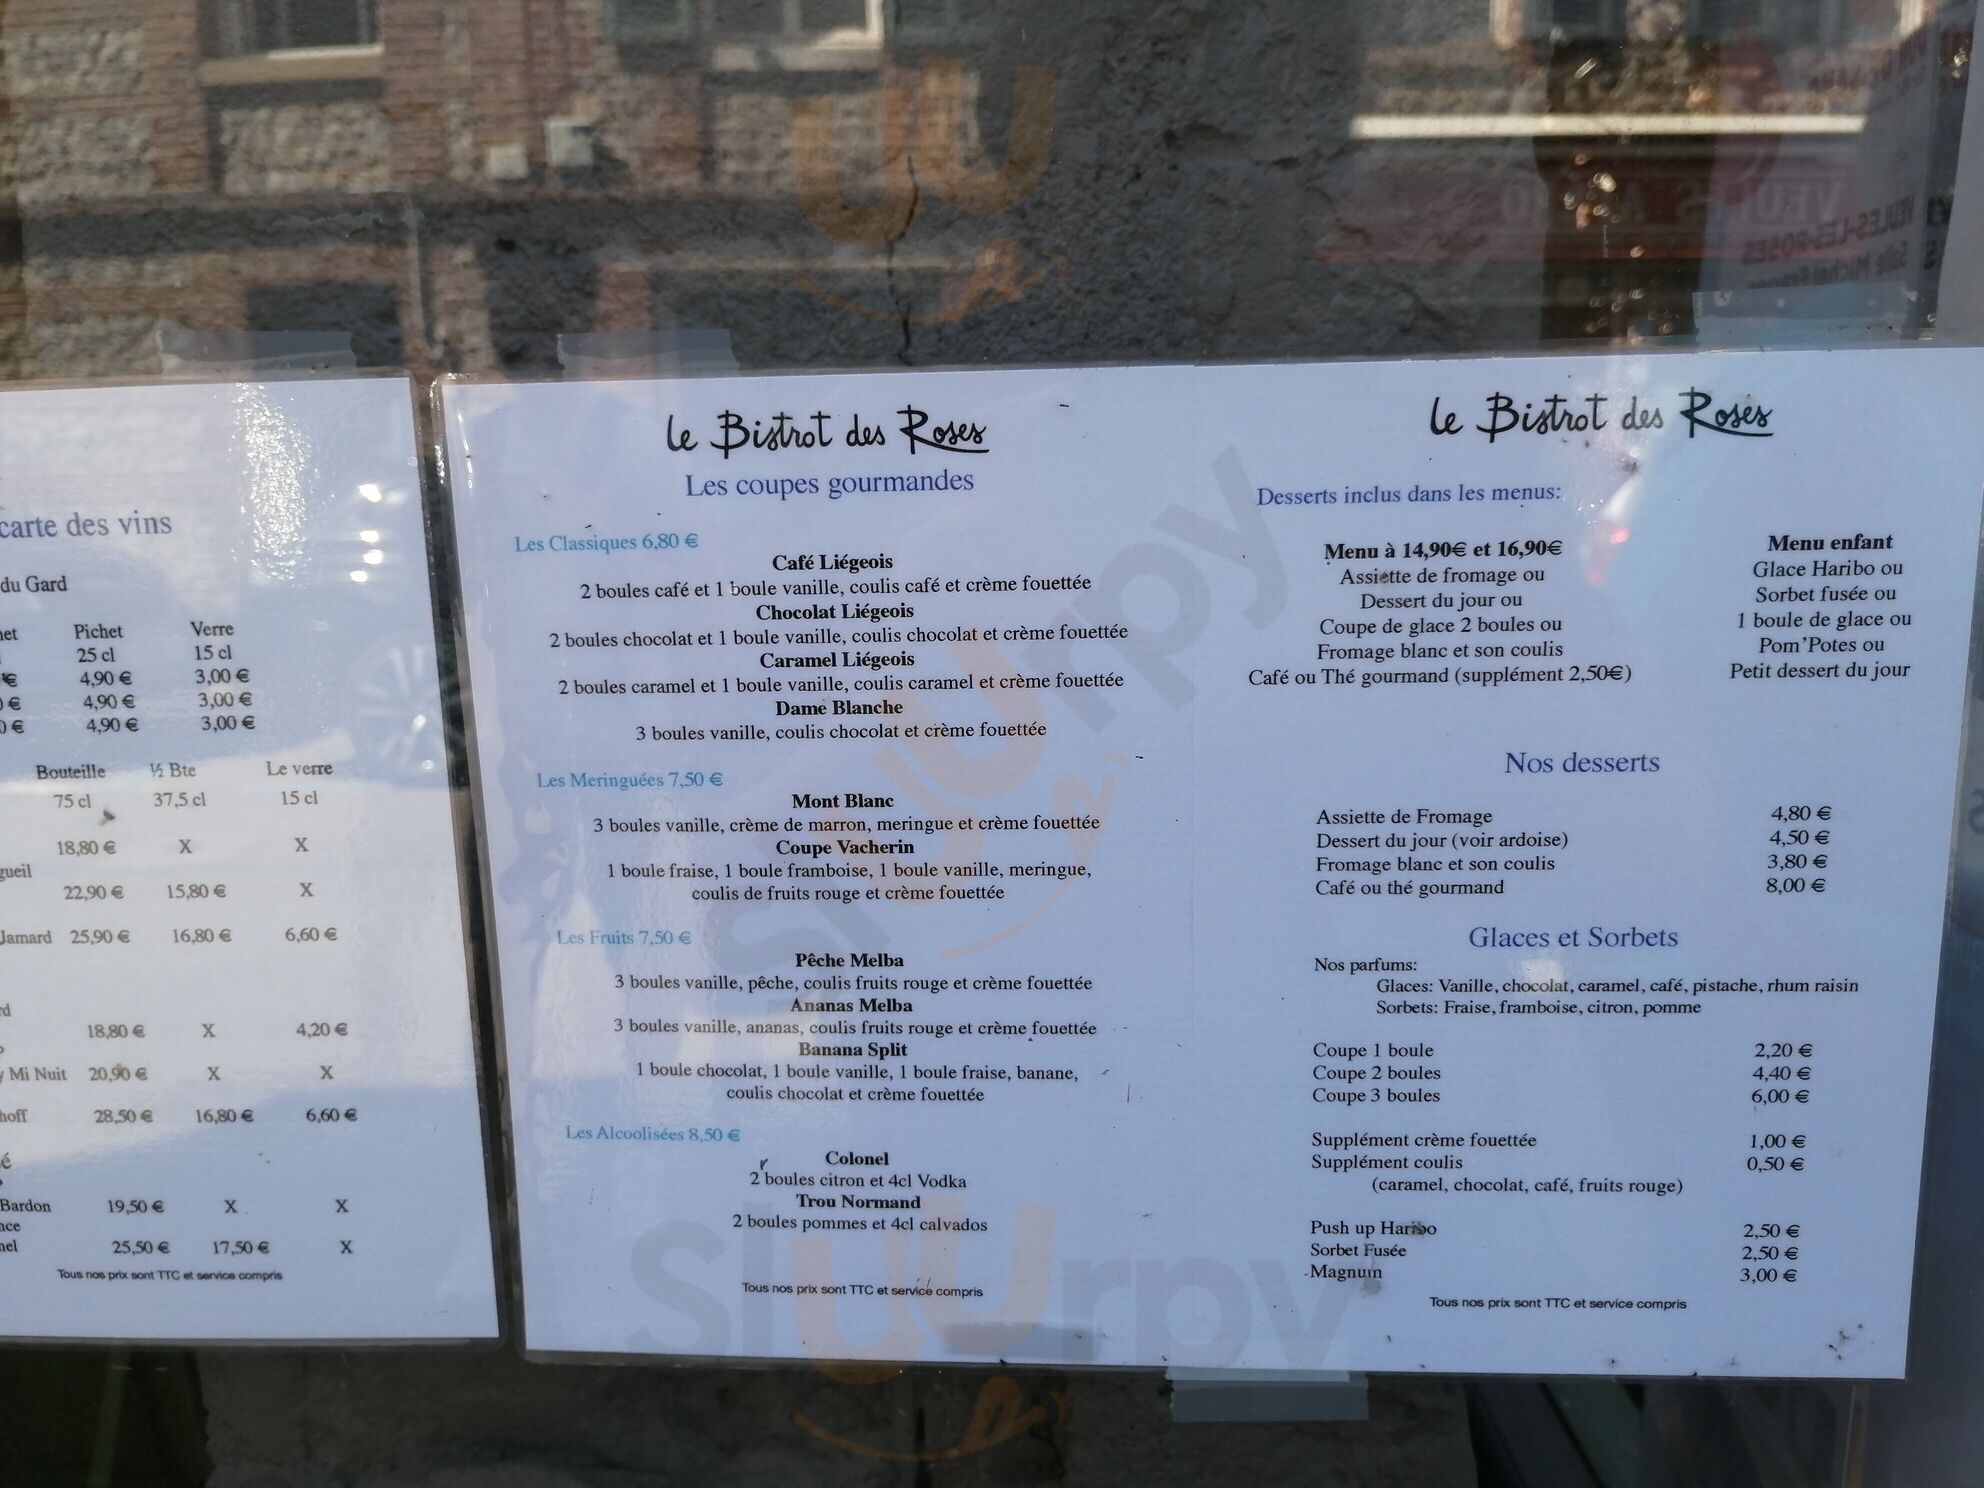 carte des vins
du Gard
Pichet Verre
25 cl 15 cl
€ 4,90 € 3,00 €
€ 4,90 € 3,00 €
€ 4,90 € 3,00 €
Bouteille ½ Bte Le verre
75 cl 37,5 cl 15 cl
18,80 € X X
22,90 € 15,80 € X
Jamard 25,90 € 16,80 € 6,60 €
18,80 € X 4,20 €
Mi Nuit 20,90 € X X
28,50 € 16,80 € 6,60 €
Bardon 19,50 € X X
25,50 € 17,50 € X
Tous nos prix sont TTC et service compris
Le Bistrot des Roses
Les coupes gourmandes
Les Classiques 6,80 €
Café Liégeois
2 boules café et 1 boule vanille, coulis café et crème fouettée
Chocolat Liégeois
2 boules chocolat et 1 boule vanille, coulis chocolat et crème fouettée
Caramel Liégeois
2 boules caramel et 1 boule vanille, coulis caramel et crème fouettée
Dame Blanche
3 boules vanille, coulis chocolat et crème fouettée
Les Meringuées 7,50 €
Mont Blanc
3 boules vanille, crème de marron, meringue et crème fouettée
Coupe Vacherin
1 boule fraise, 1 boule framboise, 1 boule vanille, meringue,
coulis de fruits rouge et crème fouettée
Les Fruits 7,50 €
Pêche Melba
3 boules vanille, pêche, coulis fruits rouge et crème fouettée
Ananas Melba
3 boules vanille, ananas, coulis fruits rouge et crème fouettée
Banana Split
1 boule chocolat, 1 boule vanille, 1 boule fraise, banane,
coulis chocolat et crème fouettée
Les Alcoolisées 8,50 €
Colonel
2 boules citron et 4cl Vodka
Trou Normand
2 boules pommes et 4cl calvados
Tous nos prix sont TTC et service compris
Le Bistrot des Roses
Desserts inclus dans les menus:
Menu à 14,90€ et 16,90€
Assiette de fromage ou
Dessert du jour ou
Coupe de glace 2 boules ou
Fromage blanc et son coulis
Café ou Thé gourmand (supplément 2,50€)
Menu enfant
Glace Haribo ou
Sorbet fusée ou
1 boule de glace ou
Pom'Potes ou
Petit dessert du jour
Nos desserts
Assiette de Fromage 4,80 €
Dessert du jour (voir ardoise) 4,50 €
Fromage blanc et son coulis 3,80 €
Café ou thé gourmand 8,00 €
Glaces et Sorbets
Nos parfums:
Glaces: Vanille, chocolat, caramel, café, pistache, rhum raisin
Sorbets: Fraise, framboise, citron, pomme
Coupe 1 boule 2,20 €
Coupe 2 boules 4,40 €
Coupe 3 boules 6,00 €
Supplément crème fouettée 1,00 €
Supplément coulis 0,50 €
(caramel, chocolat, café, fruits rouge)
Push up Haribo 2,50 €
Sorbet Fusée 2,50 €
Magnum 3,00 €
Tous nos prix sont TTC et service compris
Sluurpy
Sluurpy